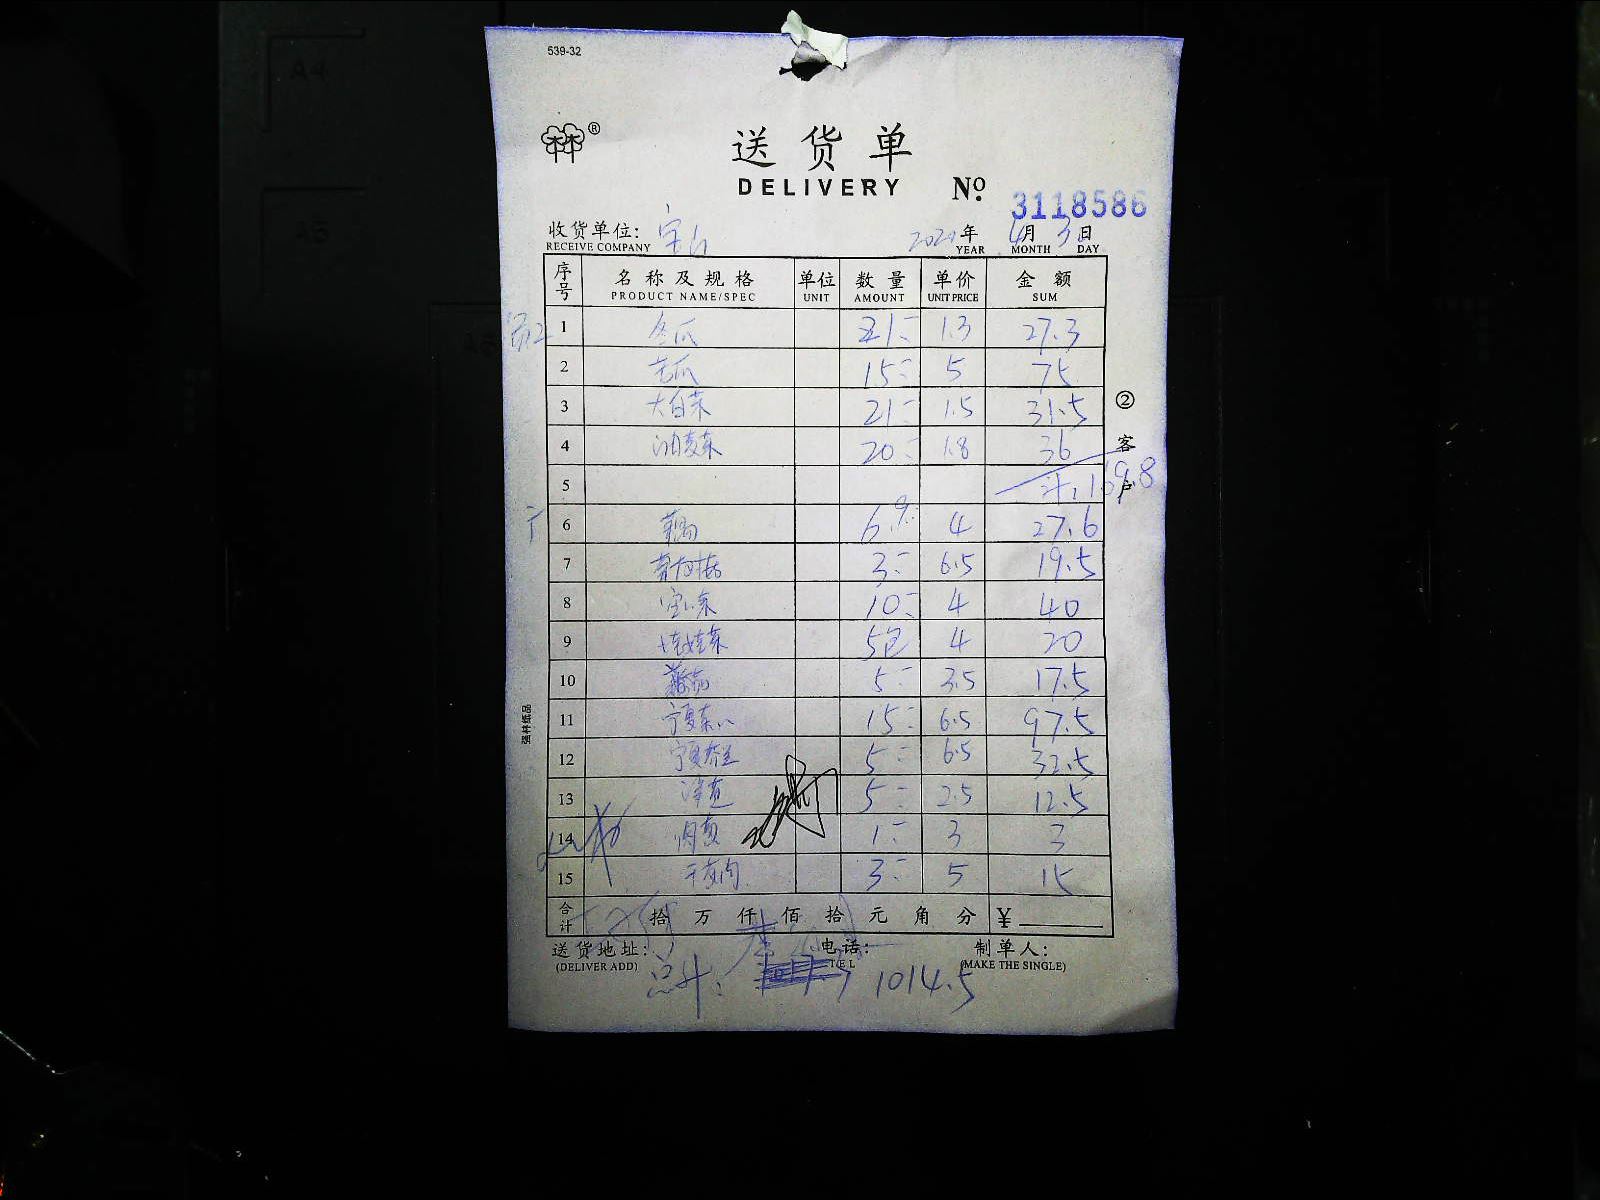 539-32
送货单
DELIVERY No. 3118586
收货单位: 宝山 年 4月 3日
RECEIVE COMPANY YEAR MONTH DAY
序号 名称及规格 单位 数量 单价 金额
PRODUCT NAME/SPEC UNIT AMOUNT UNIT PRICE SUM
1 冬瓜 21 1.3 27.3
2 15 5 75
3 大白菜 21 1.5 31.5
4 油麦菜 20 1.8 36
5 计: 169.8
6 6.9 4 27.6
7 3 6.5 19.5
8 10 4 40
9 娃娃菜 5包 4 20
10 5 3.5 17.5
11 宁夏菜心 15 6.5 97.5
12 5 6.5 32.5
13 5 2.5 12.5
14 1 3 3
15 3 5 15
合计 拾 万 仟 佰 拾 元 角 分 ¥
送货地址: 电话: 制单人:
(DELIVER ADD) TEL (MAKE THE SINGLE)
总计: 1014.5
② 客户
强林纸品